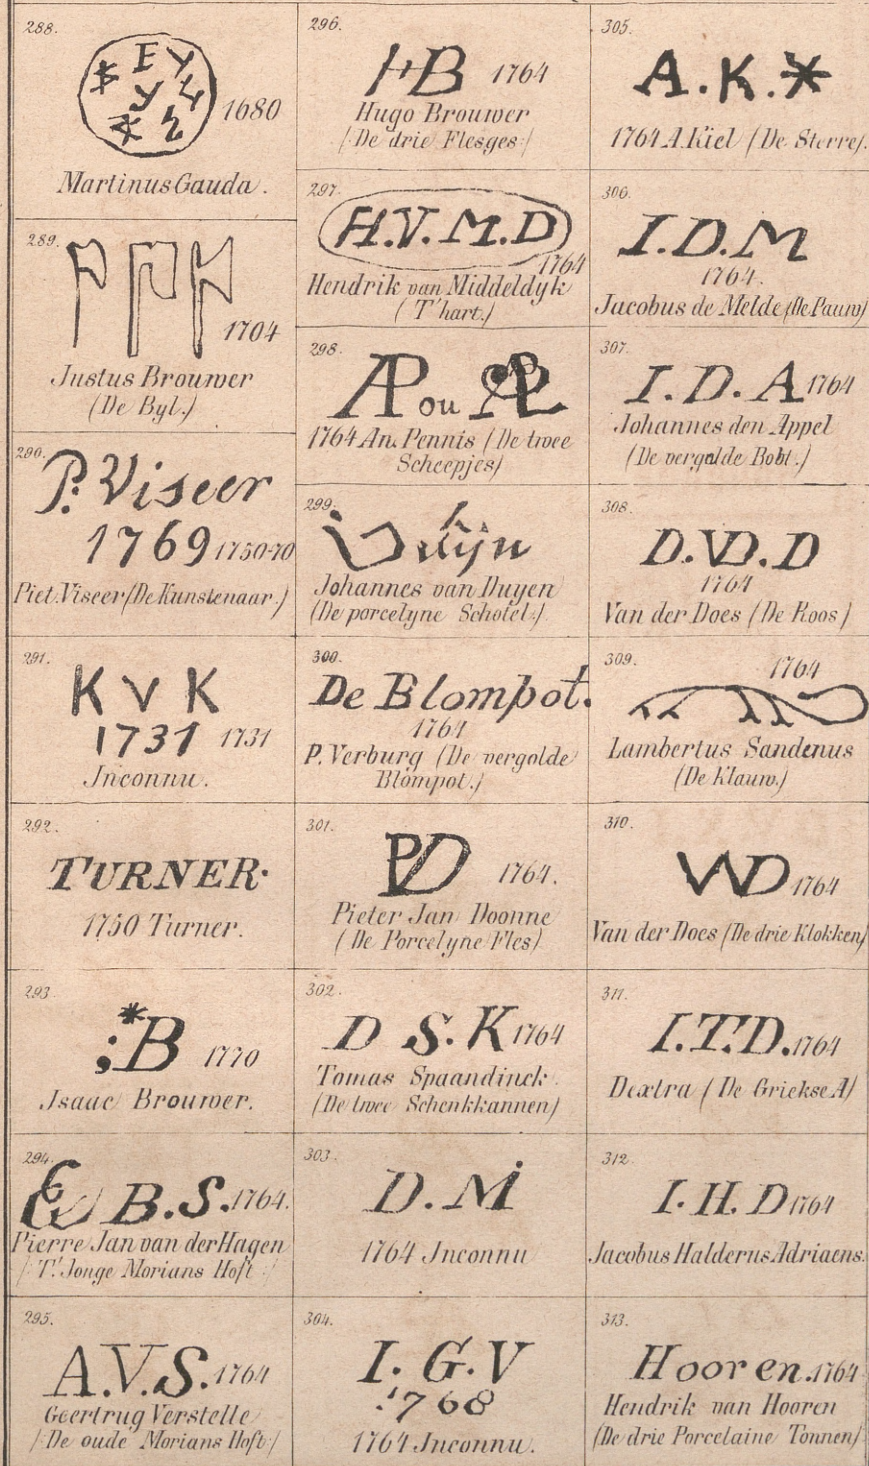 288.
1680
Martinus Gauda.
289.
1704
Justus Brouwer
(De Byl.)
290.
P. Viseer
1769 1750-70
Piet. Viseer (De Kunstenaar.)
291.
K V K
1731 1731
Inconnu.
292.
TURNER.
1750 Turner.
293.
*
;B 1770
Isaac Brouwer.
294.
B.S. 1764.
Pierre Jan van der Hagen
(T' Jonge Morians Hoft)
295.
A.V.S. 1764
Geertrug Verstelle
(De oude Morians Hoft)
296.
HB 1764
Hugo Brouwer
(De drie Flesges)
297.
H.V.M.D
1764
Hendrik van Middeldyk
(T'hart.)
298.
AP ou
1764 An. Pennis (De twee
Scheepjes)
299.
Duijn
Johannes van Duyen
(De porcelyne Schotel.)
300.
De Blompot.
1764
P. Verburg (De vergolde
Blompot.)
301.
PVD 1764.
Pieter Jan Doonne
(De Porcelyne Fles)
302.
D S.K 1764
Tomas Spaandinck.
(De twee Schenkkannen)
303.
D.M
1764 Inconnu
304.
I.G.V
1768
1764 Inconnu.
305.
A.K.*
1764 A. Kiel (De Sterre).
306.
I.D.M
1764.
Jacobus de Melde (De Pauw)
307.
I.D.A 1764
Johannes den Appel
(De vergolde Bobt.)
308.
D.VD.D
1764
Van der Does (De Roos)
309.
1764
Lambertus Sandenus
(De Klauw.)
310.
WD 1764
Van der Does (De drie Klokken)
311.
I.T.D. 1764
Dextra (De Griekse A)
312.
I.H.D 1764
Jacobus Halderus Adriaens.
313.
Hooren. 1764
Hendrik van Hooren
(De drie Porcelaine Tonnen)